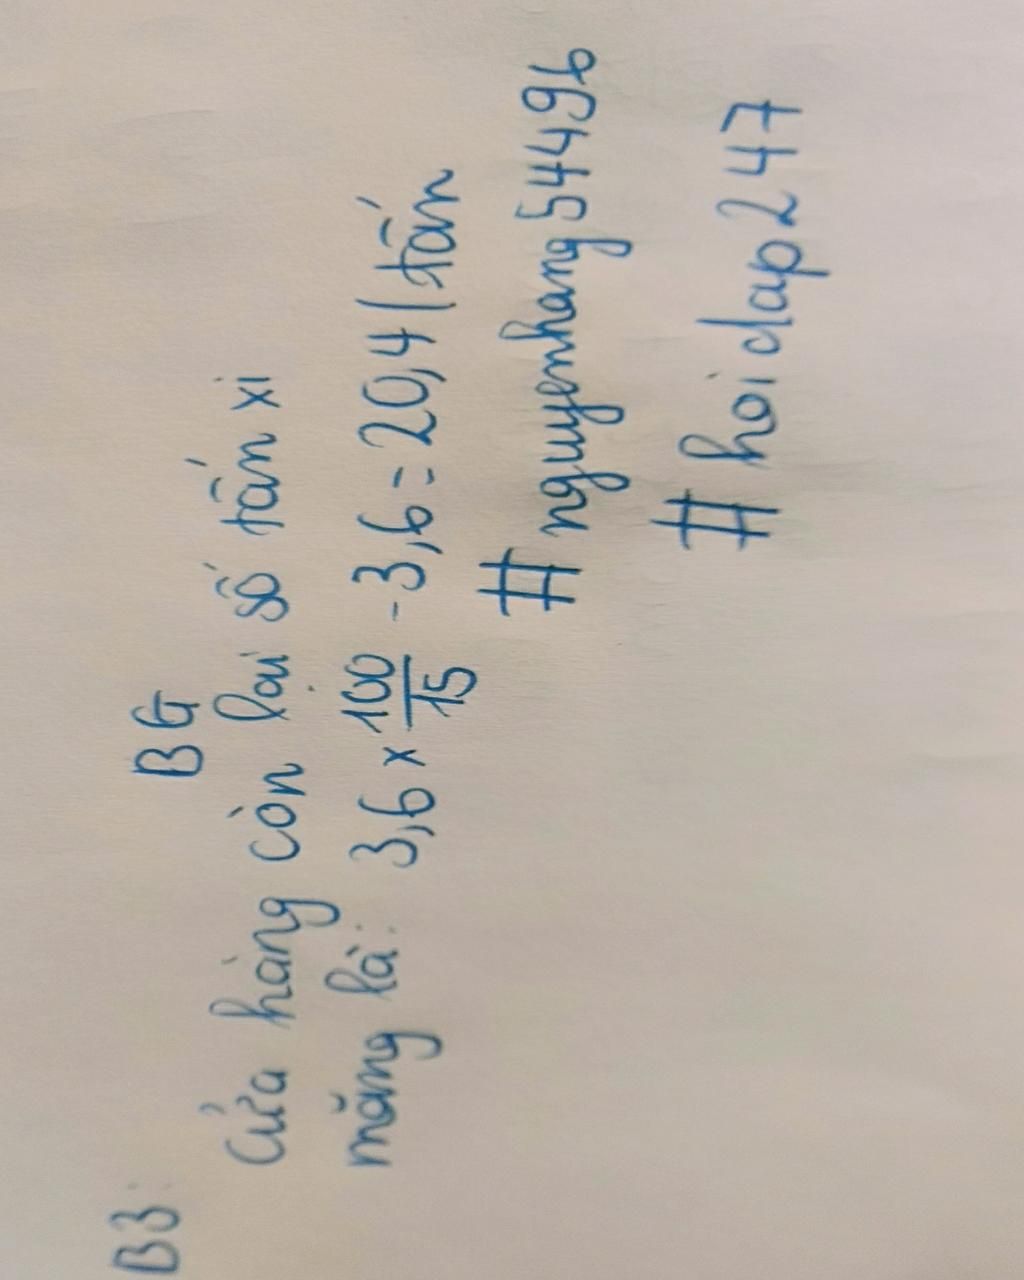 B3:
BG
Cửa hàng còn lại số tấn xi
măng là: 3,6 x 100/15 - 3,6 = 20,4 | tấn
# nguyenhang54496
# hoidap247